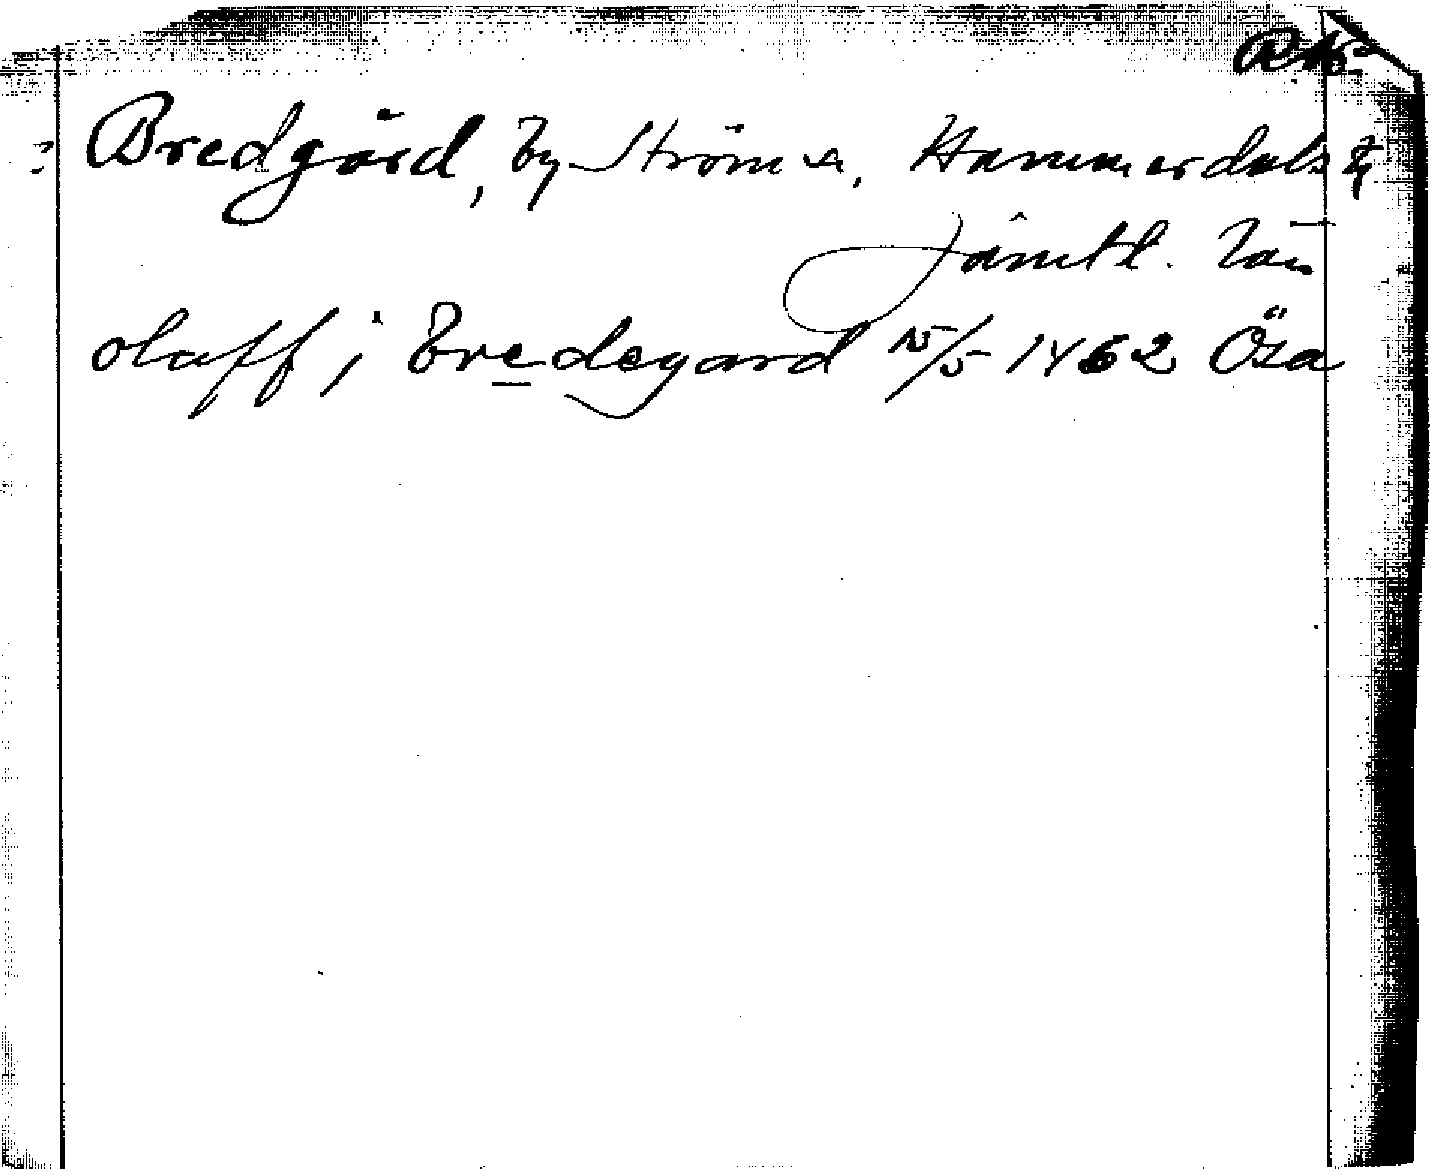 Bredgård, by Ströms sn, Hammerdals tg
Jämtl. län
oluff i Bredegard 15/5 1462 Öea